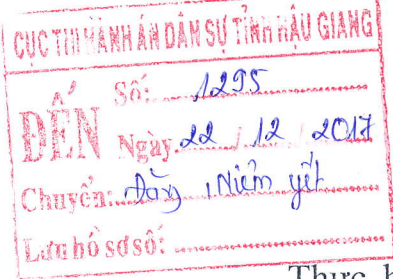 CỤC THI HÀNH ÁN DÂN SỰ TỈNH HẬU GIANG
ĐẾN
Số: 1295
Ngày 22 / 12 2017
Chuyển: Đăng, Niêm yết
Lưu hồ sơ số:
Thực h